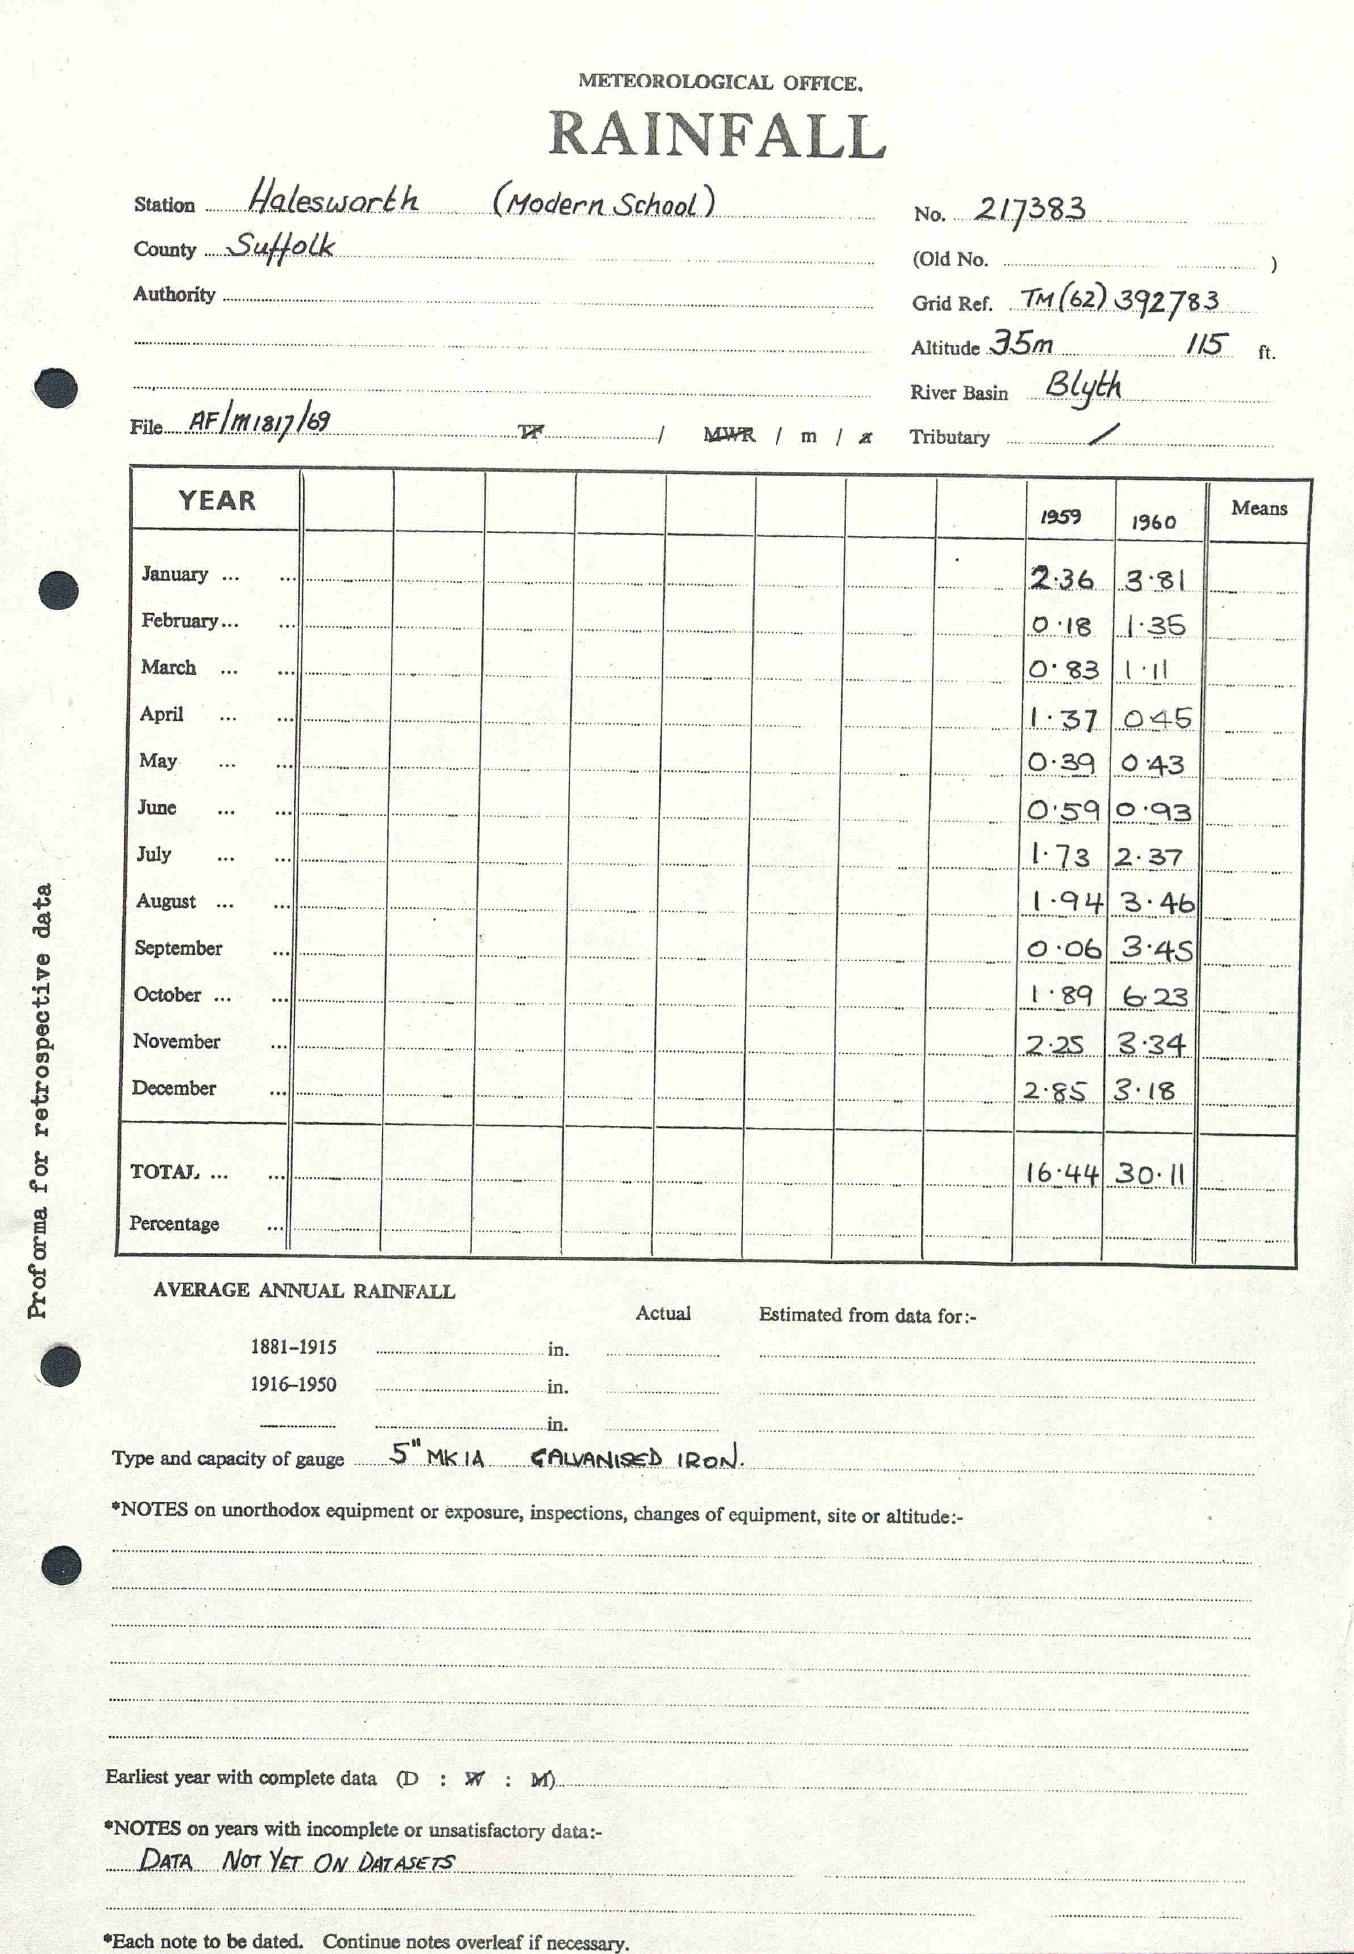 METEOROLOGICAL OFFICE.
RAINFALL
Station Halesworth (Modern School) No. 217383
County Suffolk (Old No. )
Authority Grid Ref. TM(62) 392783
Altitude 35m 115 ft.
River Basin Blyth
File AF/M1817/69 TF / MWR / m / x Tributary /
YEAR 1959 1960 Means
January ... ... 2.36 3.81
February... ... 0.18 1.35
March ... ... 0.83 1.11
April ... ... 1.37 0.45
May ... ... 0.39 0.43
June ... ... 0.59 0.93
July ... ... 1.73 2.37
August ... ... 1.94 3.46
September ... 0.06 3.45
October ... ... 1.89 6.23
November ... 2.25 3.34
December ... 2.85 3.18
TOTAL ... ... 16.44 30.11
Percentage ...
Proforma for retrospective data
AVERAGE ANNUAL RAINFALL
Actual Estimated from data for:-
1881–1915 in.
1916–1950 in.
in.
Type and capacity of gauge 5" MK 1A GALVANISED IRON.
*NOTES on unorthodox equipment or exposure, inspections, changes of equipment, site or altitude:-
Earliest year with complete data (D : W : M)
*NOTES on years with incomplete or unsatisfactory data:-
DATA NOT YET ON DATASETS
*Each note to be dated. Continue notes overleaf if necessary.